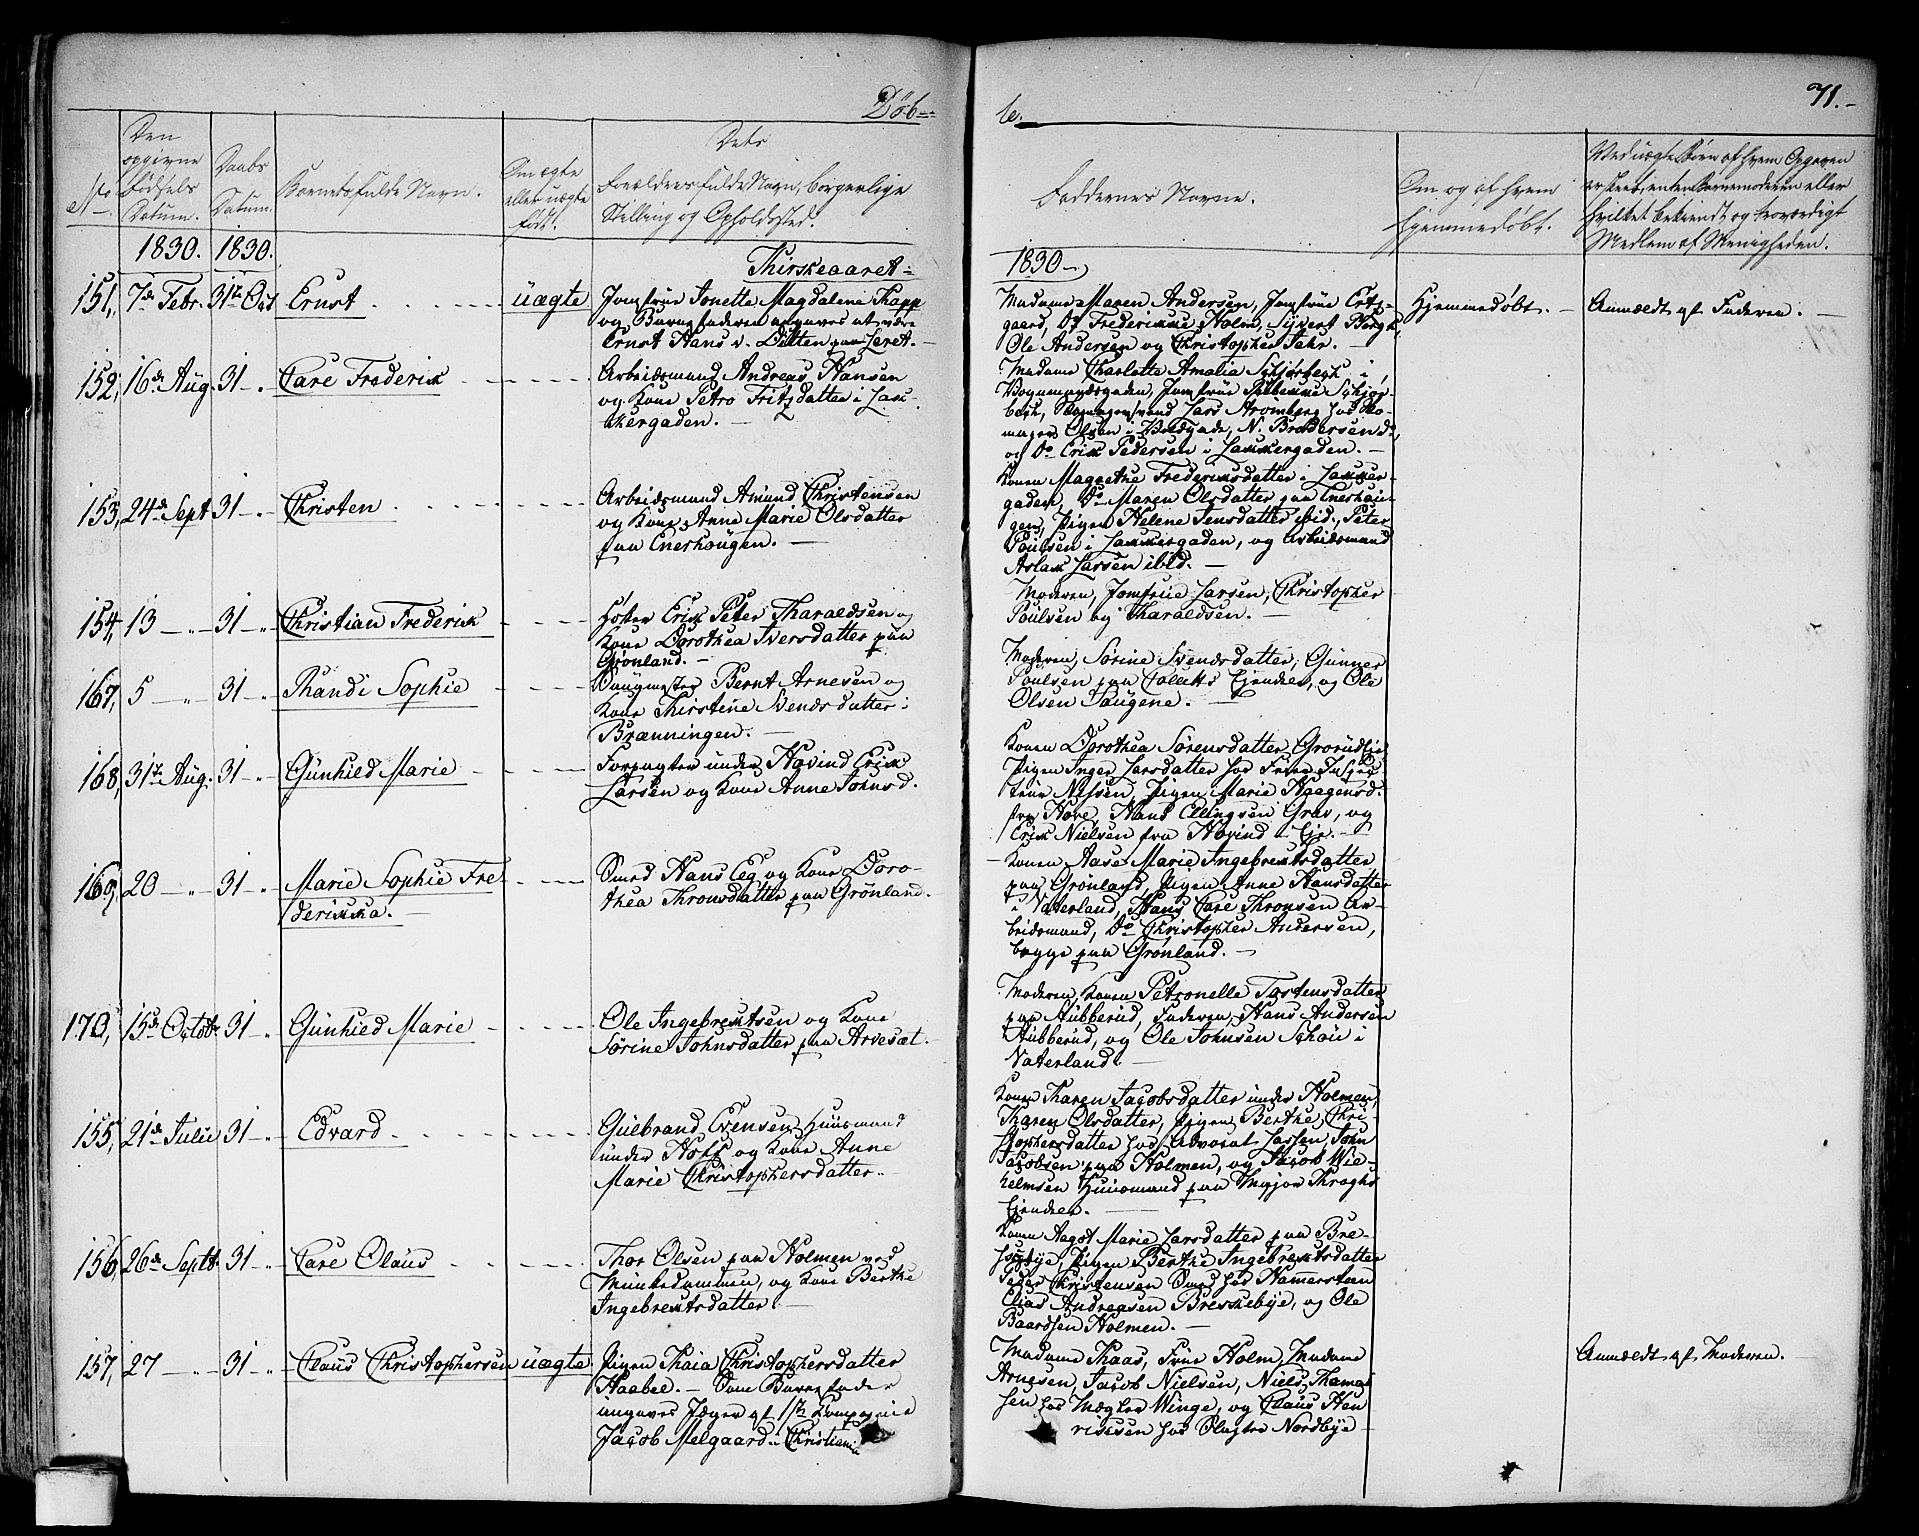 Døb-
be.
71.-
No
Den opgivne Fødsels Datum.
Daabs Datum.
Barnets fulde Navn.
Om ægte eller uægte født.
Dets Forældres fulde Navn, borgerlige Stilling og Opholdssted.
Faddernes Navne.
Om og af hvem hjemmedøbt.
Ved uægte Børn af hvem Opgaven er skeet, enten Barnemoderen eller hvilket bekiendt og troværdigt Medlem af Menigheden.
1830. 1830.
1830
151, 7de Febr. 31te Oct Ernst uægte
Jomfrue Jonette Magdalene Rapp
og Barnefaderen angaves at være
Ernst Hans v. Ditten paa
Madame Maren Andersen, Jomfrue
Frederikke Holm, Sivert Bergh,
Ole Andersen og Christopher Fehr.
Hjemmedøbt.
Anmeldt af Faderen.
152, 16de Aug. 31 Carl Frederik
Arbeidsmand Andreas Hansen
og Kone Petro Fritzdatter i Lak-
kergaden.
Madame Charlotte Amalia
i Vognmandsgaden, Jomfrue
Lars Stromberg hos
mager Olsen i Voldgade, N. Brodersen do,
og Do Erik Pedersen i Lakkergaden.
153, 24de Sept 31 Christen
Arbeidsmand Amund Christensen
og Kone Anne Marie Olsdatter
paa Enerhougen.
Konen Magrethe Frederiksdatter i Lakker-
gaden, Do Maren Olsdatter paa Enerhau-
gen, Pigen Helene Jensdatter ibid., Peter
Poulsen i Lakkergaden, og Arbeidsmand
Aslak Larsen ibid.
154, 13 31 Christian Frederik
Erik Peter Tharaldsen og
Kone Dorothea Iversdatter paa
Grønland.
Moderen, Jomfrue Larsen, Christopher
Poulsen og Tharaldsen.
167, 5 31 Randi Sophie
Saugmester Bernt Arnesen og
Kone Kirstine Svendsdatter i
Brænningen.
Moderen, Sørine Svendsdatter, Gunner
Poulsen paa Colletts Eiendeel, og Ole
Olsen Saugene.
168, 31te Aug. 31 Gunhild Marie
Forpagter under Hovind Erik
Larsen og Kone Anne Johnsd.
Konen Dorothea Sørensdatter Grorudeie,
Pigen Inger Larsdatter hos Frue
Nilsen, Pigen Marie Haagensd.
fra Hove, Hans Ellingsen Grav, og
Erik Nielsen fra Hovind Eie.
169, 20 31 Marie Sophie Fre-
derikka.
Smed Hans Eeg og Kone Doro-
thea Thronsdatter paa Grønland.
Konen Aase Marie Ingebretsdatter
paa Grønland, Pigen Anne Hansdatter
i Vaterland, Hans Carl Thronsen Ar-
beidsmand, Do Christopher Andersen,
begge paa Grønland.
170, 15de Octobr 31 Gunhild Marie
Ole Ingebretsen og Kone
Sørine Johnsdatter paa Arvesæt.
Moderen, Konen Petronelle Tostensdatter
paa Hubberud, Faderen, Hans Andersen
Hubberud, og Ole Johnsen Schou i
Vaterland.
155, 21de Julii 31 Edvard
Gulbrand Evensen Huusmand
under Hoff og Kone Anne
Marie Christophersdatter.
Konen Karen Jacobsdatter under Holmen,
Karen Olsdatter, Pigen Berthe Chri-
stophersdatter hos Advocat Lassen, John
Jacobsen paa Holmen, og Jacob Wil-
helmsen Huusmand paa Major Kroghs
Eiendeel.
156, 26de Septbr 31 Carl Olaus
Thor Olsen paa Holmen ved
Munkedammen, og Kone Berthe
Ingebretsdatter.
Konen Aagot Marie Larsdatter paa Bre-
kkebye, Pigen Berthe Ingebretsdatter
Peder Christensen Smed hos Hammersteen
Elias Andreasen Brekkebye, og Ole
Baardsen Holmen.
157, 27 31 Claus Christophersen uægte
Pigen Thaia Christophersdatter
Haabel. Som Barnefader
angaves Jæger af 1ste Kompagnie
Jacob Melgaard Christiania
Madame Thaas, Frue Holm, Madame
Arnesen, Jacob Nielsen, Niels
hos Mægler Winge, og Claus Hen-
riksen hos Slagter Nordbye
Anmeldt af Moderen.